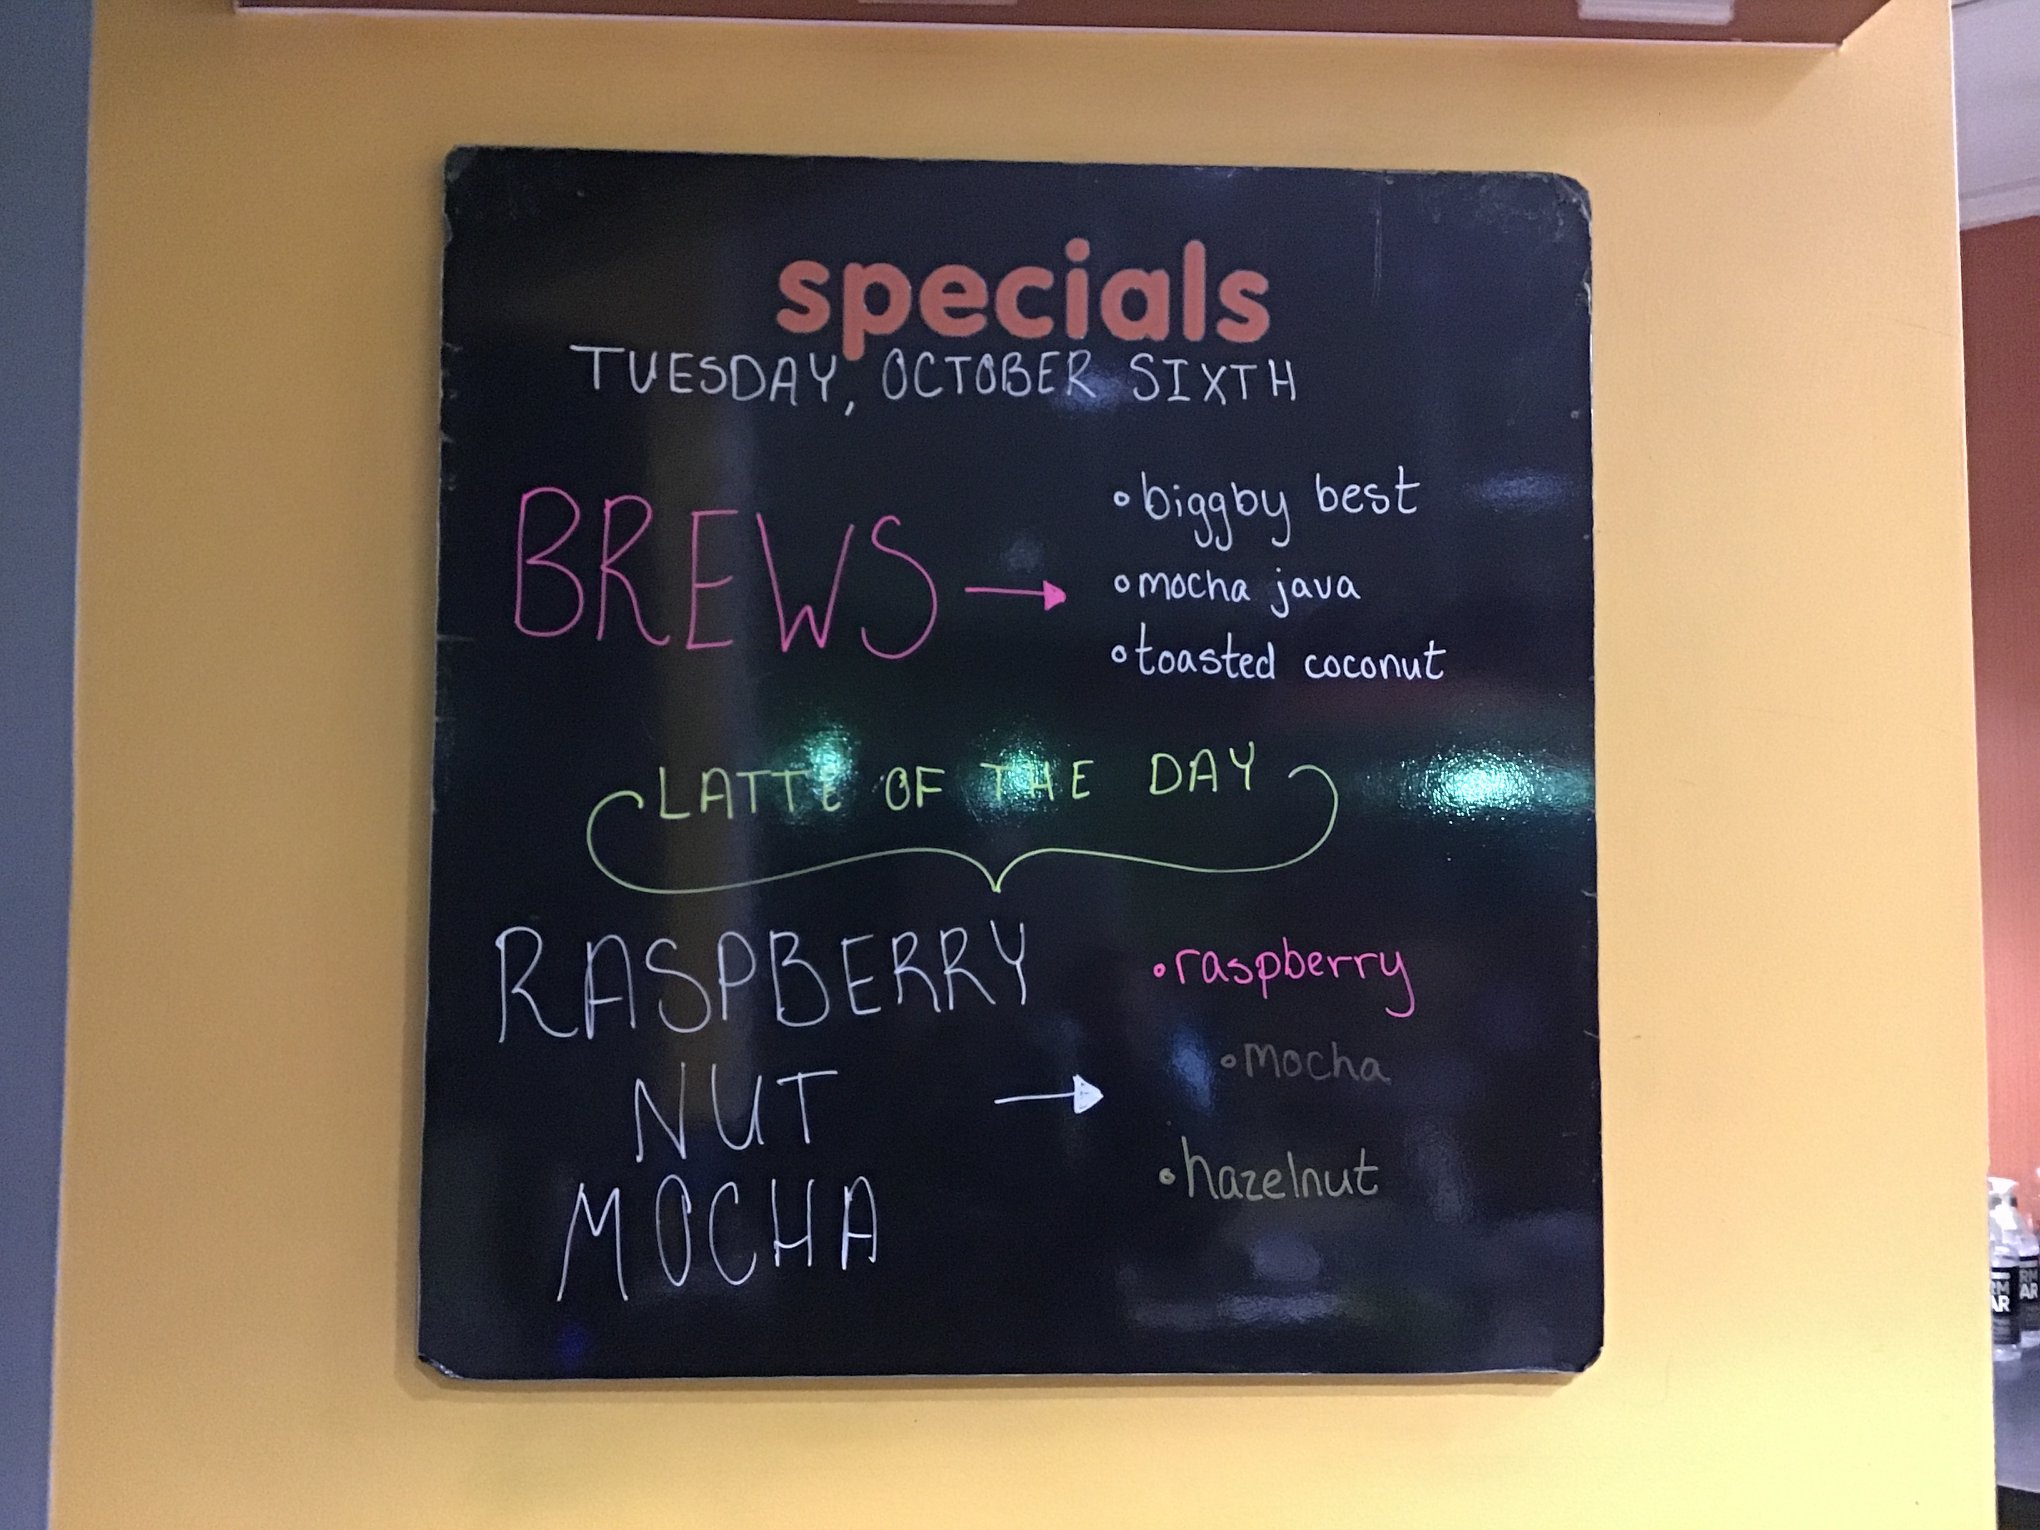 specials
TUESDAY, OCTOBER SIXTH
BREWS
biggby best
mocha java
toasted coconut
LATTE OF THE DAY
RASPBERRY
NUT
MOCHA
raspberry
mocha
hazelnut